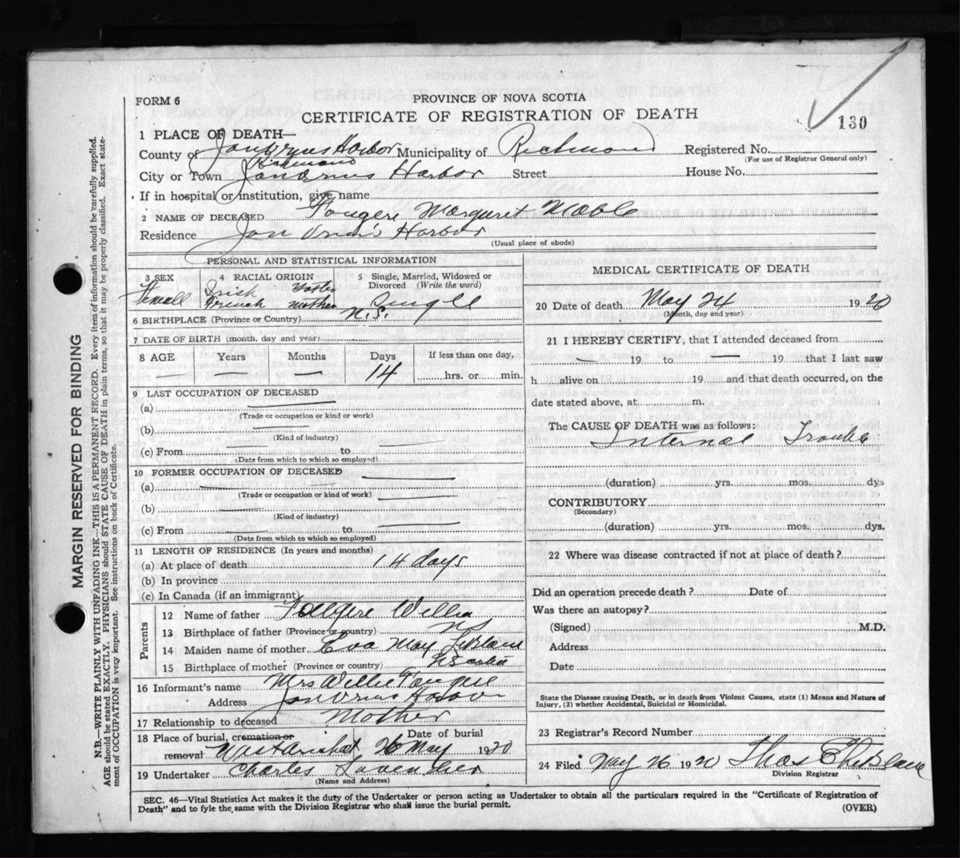 FORM 6
PROVINCE OF NOVA SCOTIA
CERTIFICATE OF REGISTRATION OF DEATH
130
1 PLACE OF DEATH—
County of Harbor Municipality of Richmond Registered No.
Richmond
(For use of Registrar General only)
City or Town Harbor Street House No.
If in hospital or institution, give name
2 NAME OF DECEASED Fougere Margaret Mable
Residence Harbor
(Usual place of abode)
PERSONAL AND STATISTICAL INFORMATION
3 SEX 4 RACIAL ORIGIN 5 Single, Married, Widowed or Divorced (Write the word)
Femall Irish Father
French Mother Single
6 BIRTHPLACE (Province or Country) N.S.
7 DATE OF BIRTH (month, day and year)
8 AGE Years Months Days If less than one day,
— — — 14 hrs. or min.
9 LAST OCCUPATION OF DECEASED
(a)
(Trade or occupation or kind of work)
(b)
(Kind of industry)
(c) From to
(Date from which to which so employed)
10 FORMER OCCUPATION OF DECEASED
(a)
(Trade or occupation or kind of work)
(b)
(Kind of industry)
(c) From to
(Date from which to which so employed)
11 LENGTH OF RESIDENCE (In years and months)
(a) At place of death 14 days
(b) In province
(c) In Canada (if an immigrant)
Parents
12 Name of father Fougere
13 Birthplace of father (Province or country) NS
14 Maiden name of mother Eva May LeBlanc
15 Birthplace of mother (Province or country)
16 Informant's name Mrs Willie
Address
17 Relationship to deceased Mother
18 Place of burial, cremation or removal Date of burial
26 May 1920
19 Undertaker Charles
(Name and Address)
MEDICAL CERTIFICATE OF DEATH
20 Date of death May 24 1920
(Month, day and year)
21 I HEREBY CERTIFY, that I attended deceased from
— 19 to — 19 that I last saw
h alive on 19 and that death occurred, on the
date stated above, at m.
The CAUSE OF DEATH was as follows:
Internal Trouble
(duration) yrs. mos. dys
CONTRIBUTORY
(Secondary)
(duration) yrs. mos. dys.
22 Where was disease contracted if not at place of death?
Did an operation precede death? Date of
Was there an autopsy?
(Signed) M.D.
Address
Date
State the Disease causing Death, or in death from Violent Causes, state (1) Means and Nature of
Injury, (2) whether Accidental, Suicidal or Homicidal.
23 Registrar's Record Number
24 Filed May 26 1920 Thos
Division Registrar
SEC. 46—Vital Statistics Act makes it the duty of the Undertaker or person acting as Undertaker to obtain all the particulars required in the "Certificate of Registration of
Death" and to fyle the same with the Division Registrar who shall issue the burial permit.
(OVER)
MARGIN RESERVED FOR BINDING
N.B.—WRITE PLAINLY WITH UNFADING INK—THIS IS A PERMANENT RECORD. Every item of information should be carefully supplied.
AGE should be stated EXACTLY. PHYSICIANS should STATE CAUSE OF DEATH in plain terms, so that it may be properly classified. Exact state-
ment of OCCUPATION is very important. See instructions on back of Certificate.